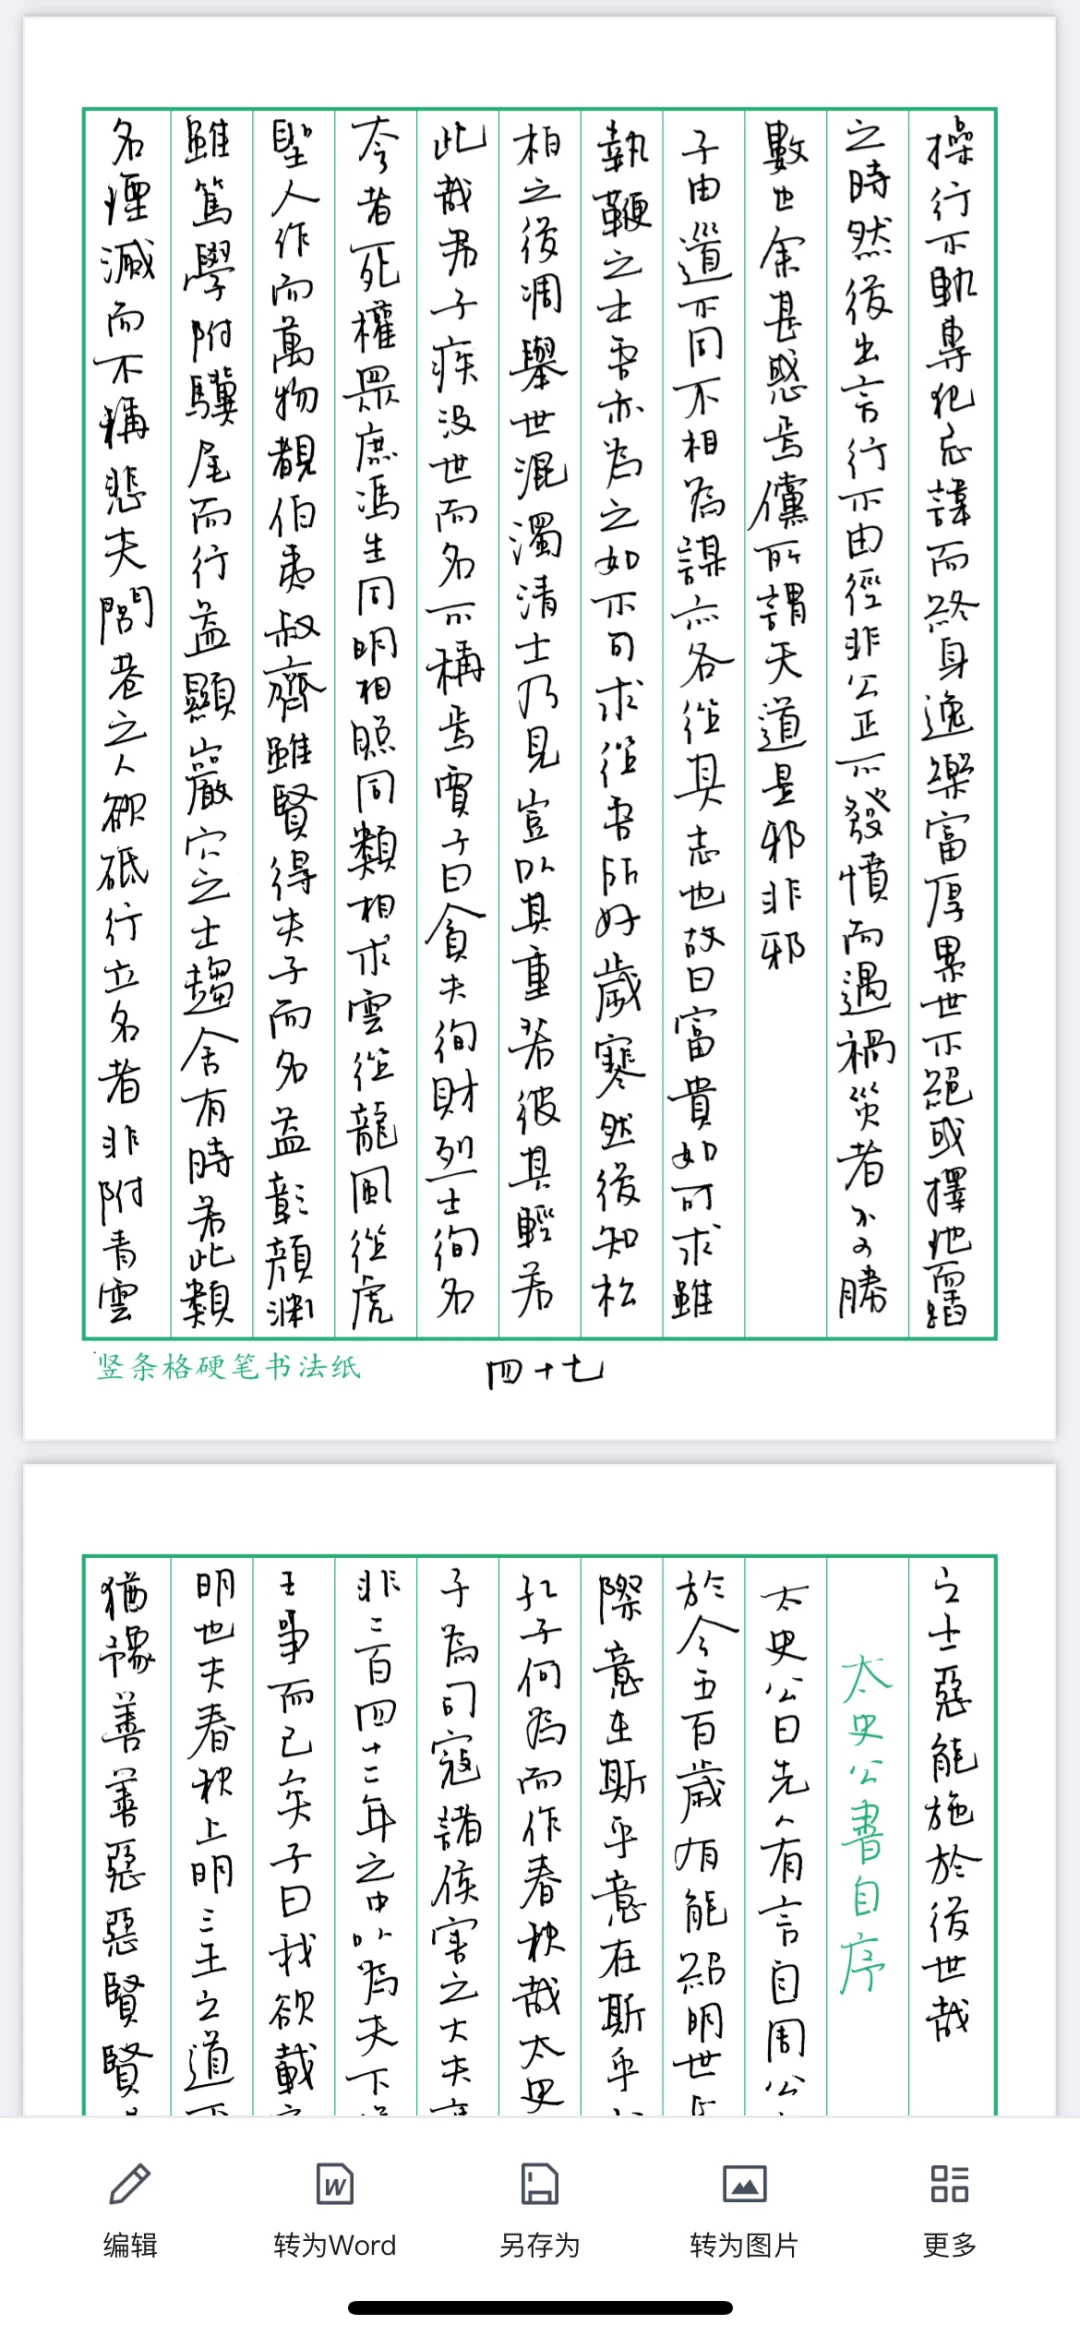 操行不軌專犯忌諱而終身逸樂富厚累世不絕或擇地而蹈
之時然後出言行不由徑非公正不發憤而遇禍災者不可勝
數也余甚惑焉儻所謂天道是邪非邪
子曰道不同不相為謀亦各從其志也故曰富貴如可求雖
執鞭之士吾亦為之如不可求從吾所好歲寒然後知松
柏之後凋舉世混濁清士乃見豈以其重若彼其輕若
此哉君子疾沒世而名不稱焉賈子曰貪夫徇財烈士徇名
夸者死權眾庶馮生同明相照同類相求雲從龍風從虎
聖人作而萬物覩伯夷叔齊雖賢得夫子而名益彰顏淵
雖篤學附驥尾而行益顯巖穴之士趨舍有時若此類
名煙滅而不稱悲夫閭巷之人欲砥行立名者非附青雲
竖条格硬笔书法纸
四十七
之士惡能施於後世哉
太史公書自序
太史公曰先人有言自周公
於今五百歲有能紹明世
際意在斯乎意在斯乎
孔子何為而作春秋哉太史
子為司寇諸侯害之大夫
非二百四十二年之中以為天下
王事而已矣子曰我欲載
明也夫春秋上明三王之道下
猶豫善善惡惡賢賢
编辑
转为Word
另存为
转为图片
更多